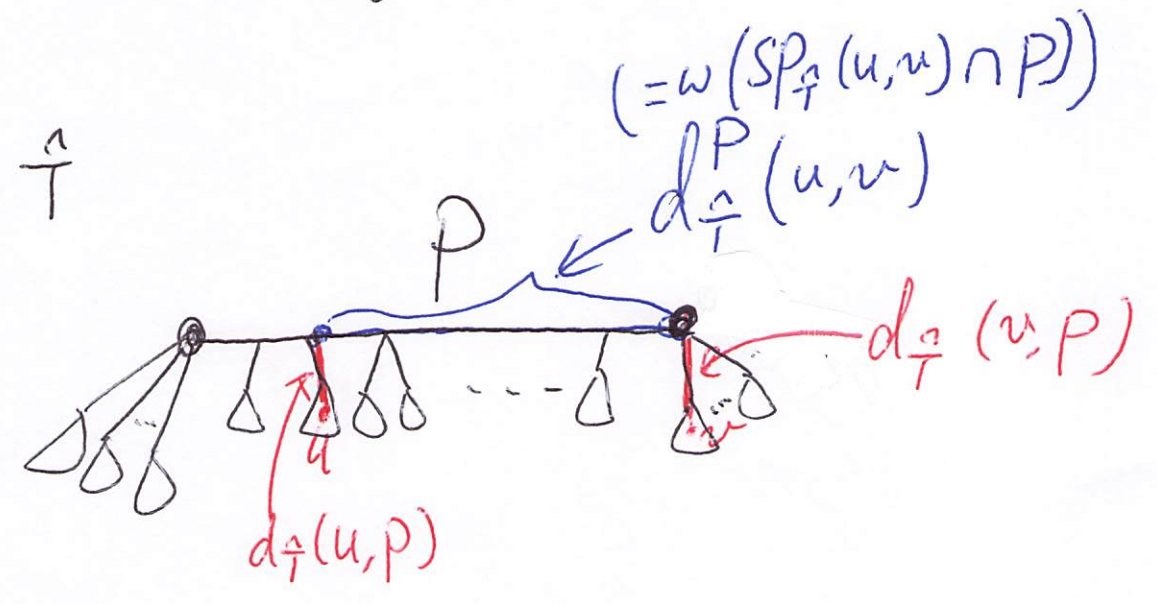 (=w(SP_T̂(u,v)∩P))
d^P_T̂(u,v)
T̂
P
d_T̂(v,P)
u
v
d_T̂(u,P)